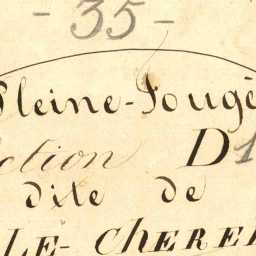 - 35 -
Pleine-Fougè
ection D1
dite de
LE-CHEREL